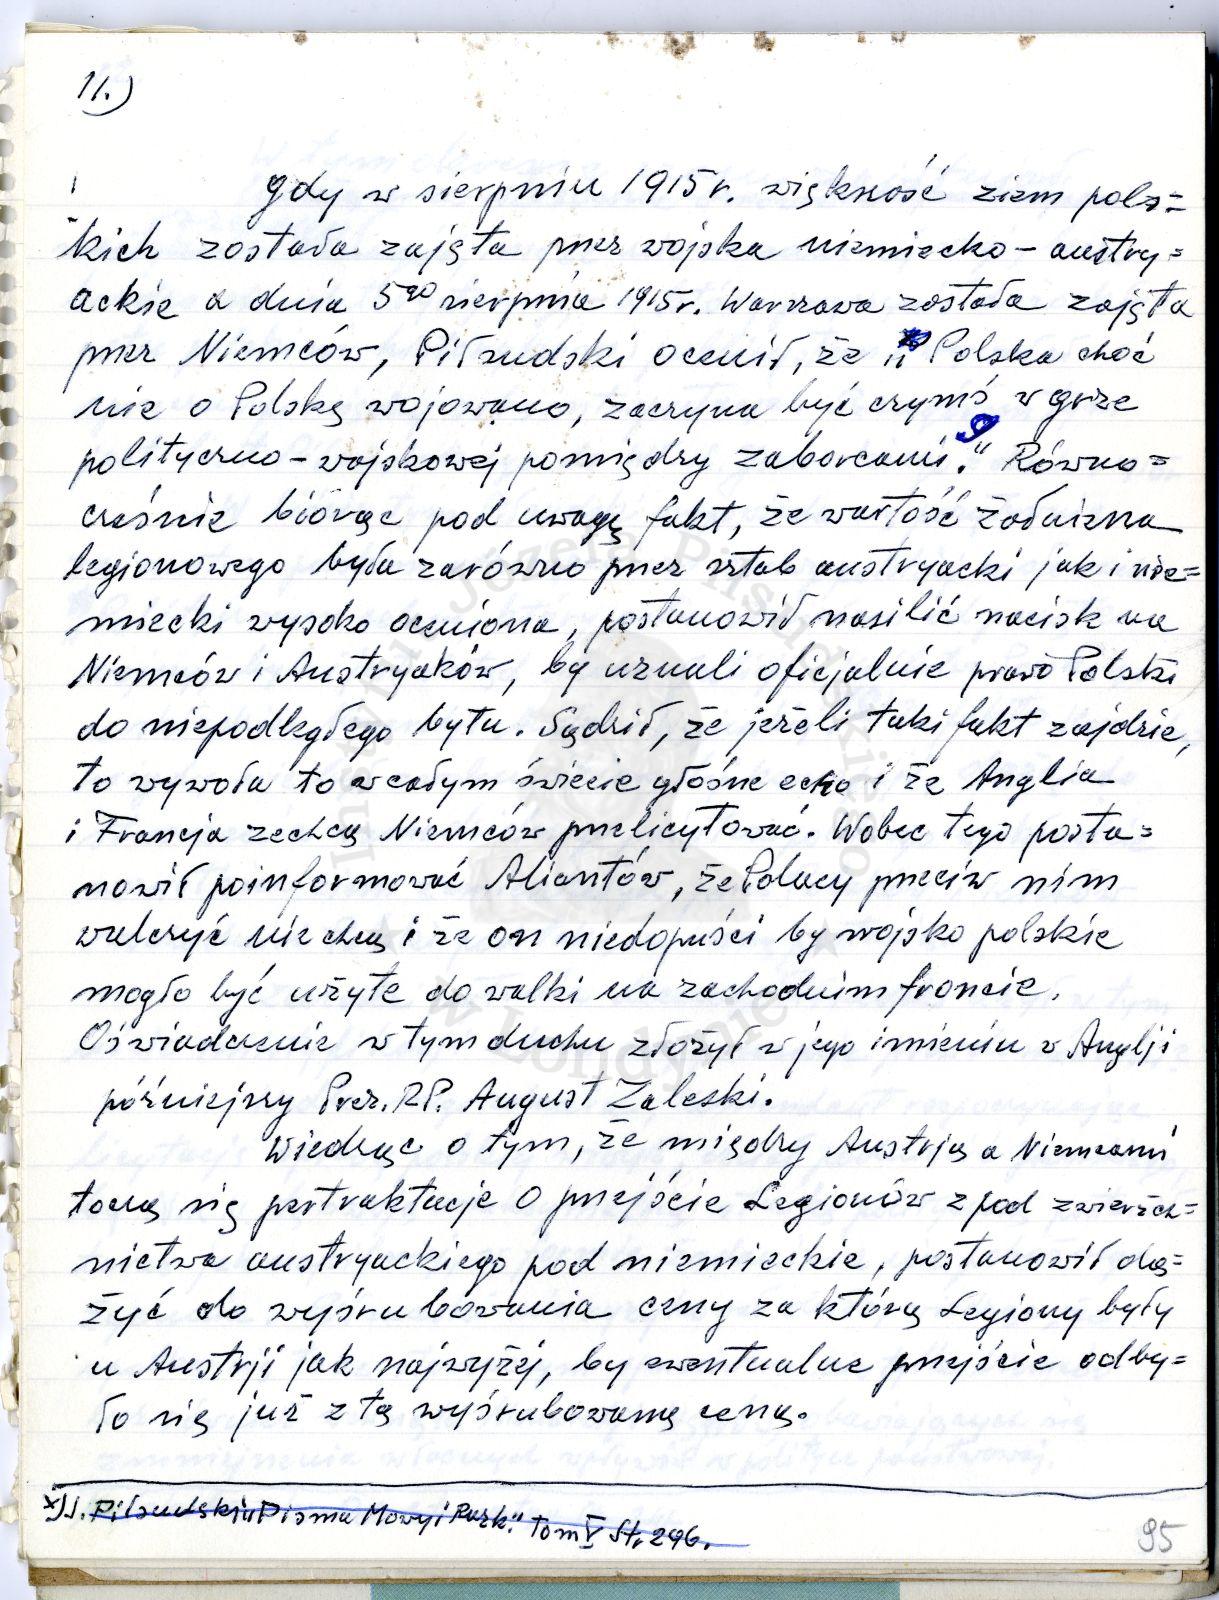 11.)
Gdy w sierpniu 1915r. większość ziem pols=
kich została zajęta przez wojska niemiecko-austry=
ackie a dnia 5go sierpnia 1915r. Warszawa została zajęta
przez Niemców, Piłsudski ocenił, że „Polska choć
nie o Polskę wojowano, zaczyna być czymś w grze
polityczno-wojskowej pomiędzy zaborcami." Równo=
cześnie biorąc pod uwagę fakt, że wartość żołnierza
legionowego była zarówno przez sztab austryacki jak i nie=
miecki wysoko oceniona, postanowił nasilić nacisk na
Niemców i Austryaków, by uznali oficjalnie prawo Polski
do niepodległego bytu. Sądził, że jeżeli taki fakt zajdzie,
to wywoła to w całym świecie głośne echo i że Anglia
i Francja zechcą Niemców przelicytować. Wobec tego posta=
nowił poinformować Aliantów, że Polacy przeciw nim
walczyć nie chcą i że on niedopuści by wojsko polskie
mogło być użyte do walki na zachodnim froncie.
Oświadczenie w tym duchu złożył w jego imieniu w Anglji
późniejszy Prez. RP. August Zaleski.
Wiedząc o tym, że między Austrją a Niemcami
toczą się pertraktacje o przejście Legionów z pod zwierzch=
nictwa austryackiego pod niemieckie, postanowił dą=
żyć do wyśrubowania ceny za którą Legiony były
u Austrji jak najwyżej, by ewentualne przejście odby=
ło się już z tą wyśrubowaną ceną.
x) J. Piłsudski „Pisma Mowy i Rozk." Tom V Str. 296.
95
Instytut Józefa Piłsudskiego
w Londynie